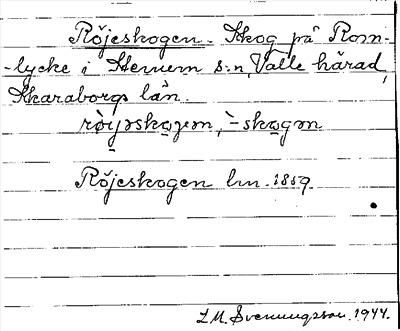 Röjeskogen. Skog på Rom-
-lycke i Stenum s:n, Valle härad,
Skaraborgs län.
röijəskogen, -skogən
Röjeskogen lm. 1859.
L.M. Svenungsson. 1944.